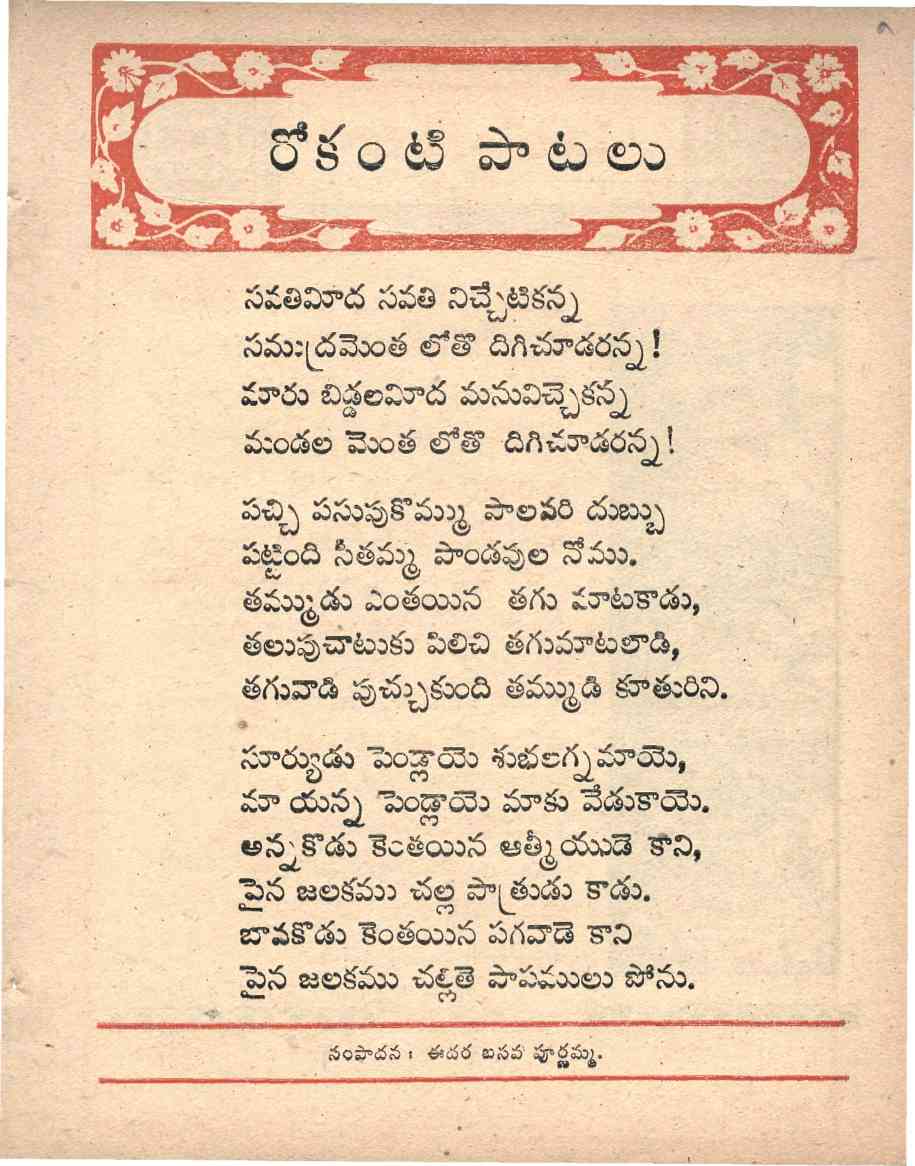 రోకంటి పాటలు
సవతిమీద సవతి నిచ్చేటికన్న
సముద్రమెంత లోతొ దిగిచూడరన్న!
మారు బిడ్డలమీద మనువిచ్చెకన్న
మండల మెంత లోతొ దిగిచూడరన్న!
పచ్చి పసుపుకొమ్ము పాలవరి దుబ్బు
పట్టింది సీతమ్మ పాండవుల నోము.
తమ్ముడు ఎంతయిన తగు మాటకాడు,
తలుపుచాటుకు పిలిచి తగుమాటలాడి,
తగువాడి పుచ్చుకుంది తమ్ముడి కూతురిని.
సూర్యుడు పెండ్లాయె శుభలగ్నమాయె,
మా యన్న పెండ్లాయె మాకు వేడుకాయె.
అన్నకొడు కెంతయిన ఆత్మీయుడె కాని,
పైన జలకము చల్ల పాత్రుడు కాడు.
బావకొడు కెంతయిన పగవాడె కాని
పైన జలకము చల్లితె పాపములు పోను.
సంపాదన : ఈదర బసవ పూర్ణమ్మ.